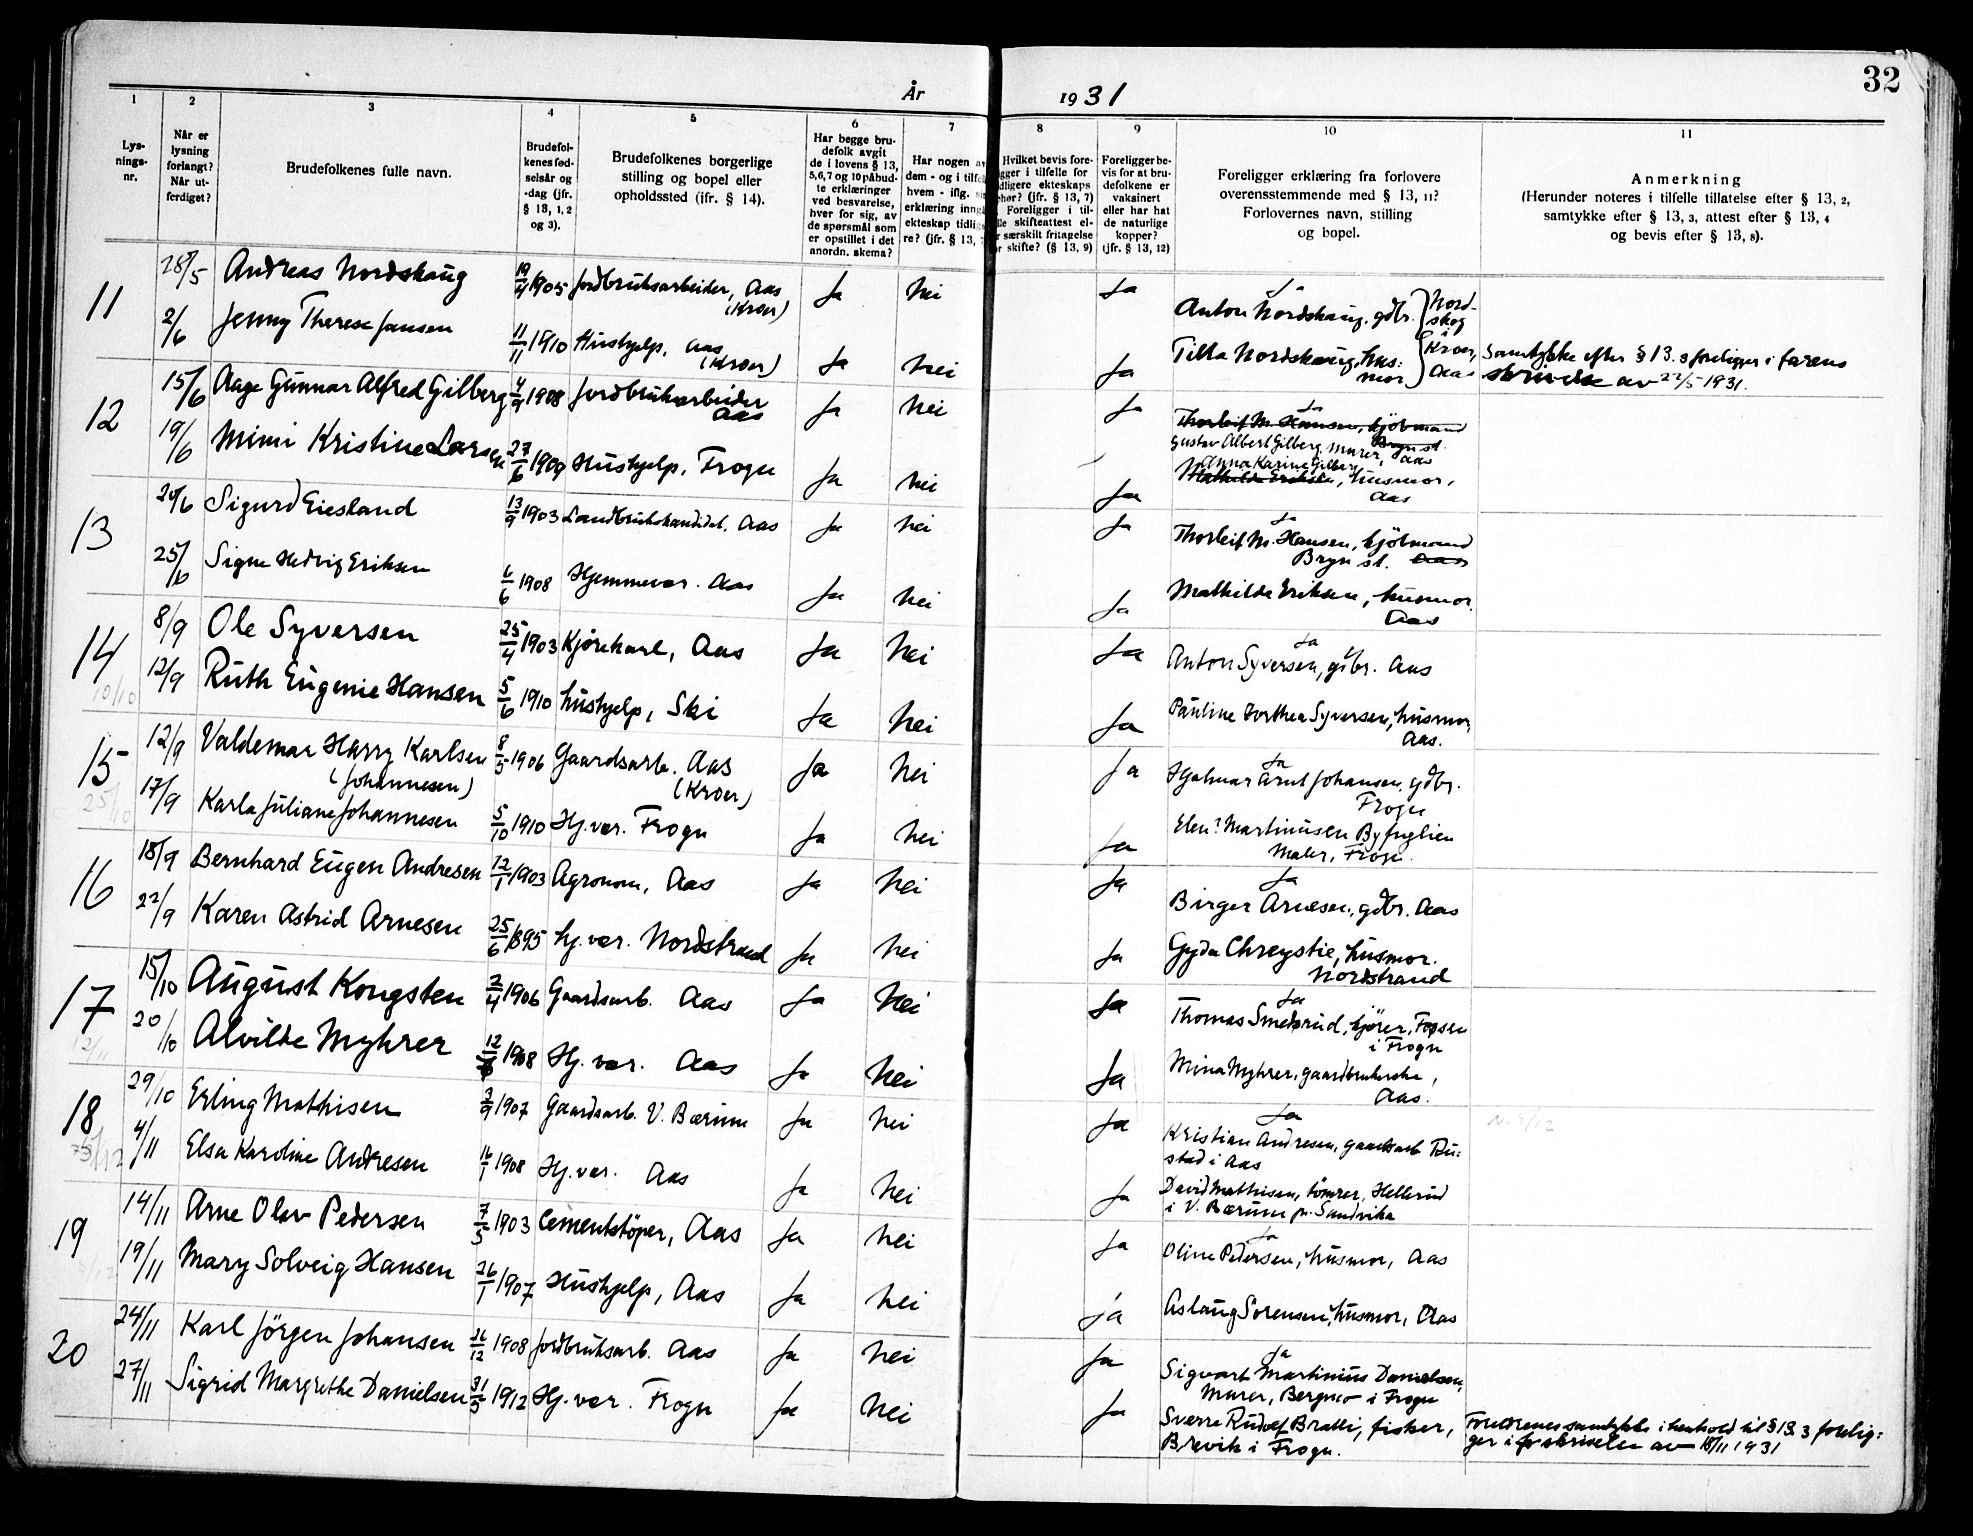 32
År 1931
1 2 3 4 5 6 7 8 9 10 11
Lys-
nings-
nr.
Når er
lysning
forlangt?
Når ut-
ferdiget?
Brudefolkenes fulle navn.
Brudefol-
kenes fød-
selsår og
-dag (jfr.
§ 13, 1, 2
og 3).
Brudefolkenes borgerlige
stilling og bopel eller
opholdssted (jfr. § 14).
Har begge bru-
defolk avgit
de i lovens § 13,
5, 6, 7 og 10 påbud-
te erklæringer
ved besvarelse,
hver for sig, av
de spørsmål som
er opstillet i det
anordn. skema?
Har nogen av
dem - og i tilfel
hvem - iflg. si
erklæring inngå
ekteskap tidlig
re? (jfr. § 13,
Hvilket bevis fore-
gger i tilfelle for
dligere ekteskaps
phør? (jfr. § 13, 7)
Foreligger i til-
lle skifteattest el-
r særskilt fritagelse
r skifte? (§ 13, 9)
Foreligger be-
vis for at bru-
defolkene er
vaksinert
eller har hat
de naturlige
kopper?
(jfr. § 13, 12)
Foreligger erklæring fra forlovere
overensstemmende med § 13, 11?
Forlovernes navn, stilling
og bopel.
Anmerkning
(Herunder noteres i tilfelle tillatelse efter § 13, 2,
samtykke efter § 13, 3, attest efter § 13, 4
og bevis efter § 13, 8).
11 28/5 Andreas Nordskaug 19/4 1905 Jordbruksarbeider, Aas (Kroer) Ja Nei Ja Ja
Anton Nordskaug, gdbr. } Nord-
skog
i
2/6 Jenny Therese Jansen 11/11 1910 Hushjelp, Aas (Kroer) Ja Nei Ja Tilla Nordskaug, hus-
mor } Kroer,
Aas
Samtykke efter § 13.3 foreligger i farens
skrivelse av 22/5 1931.
12 15/6 Aage Gunnar Alfred Gilberg 4/9 1908 Jordbruksarbeider Aas Ja Nei Ja Ja
Thorleif M. Hansen, kjöbmand
Bryn st.
Gustav Albert Gilberg, murer, Aas
19/6 Mimi Kristine Larsen 27/6 1909 Hushjelp, Frogn Ja Nei Ja
Anna Karine Gilberg
Mathilde Eriksen, husmor,
Aas
13 20/6 Sigurd Eiesland 13/9 1903 Landbrukskandidat, Aas Ja Nei Ja Ja
Thorleif M. Hansen, kjöbmand
Bryn st. Aas
25/6 Signe Hedvig Eriksen 6/6 1908 Hjemmevær. Aas Ja Nei Ja
Mathilde Eriksen, husmor.
Aas
14 8/9 Ole Syversen 25/4 1903 Kjörekarl, Aas Ja Nei Ja Ja
Anton Syversen, gdbr. Aas
10/10 12/9 Ruth Eugenie Hansen 5/6 1910 hushjelp, Ski Ja Nei Ja
Pauline Dorthea Syversen, husmor,
Aas.
15 12/9 Valdemar Harry Karlsen
(Johannesen) 8/5 1906 Gaardsarb. Aas
(Kroer) Ja Nei Ja Ja
Hjalmar Arnt Johansen, gdbr.
Frogn
25/10 17/9 Karla Juliane Johannesen 5/10 1910 Hj.vær. Frogn Ja Nei Ja
Elen? Martinusen Byfuglien
Maler, Frogn.
16 18/9 Bernhard Eugen Andresen 12/1 1903 Agronom, Aas Ja Nei Ja Ja
Birger Arnesen, gdbr. Aas
22/9 Karen Astrid Arnesen 25/6 1895 hj.vær. Nordstrand Ja Nei Ja
Gyda Chreystie, husmor.
Nordstrand
17 15/10 August Kongsten 2/4 1906 Gaardsarb. Aas Ja Nei Ja Ja
Thomas Smedsrud, kjörer, Fossen
i Frogn
12/11 20/10 Alvilde Myhrer 12/6 1908 Hj.vær. Aas Ja Nei Ja
Mina Myhrer, gaardbrukerske,
Aas.
18 29/10 Erling Mathisen 2/9 1907 Gaardsarb. V. Bærum Ja Nei Ja Ja
Kristian Andresen, gaardsarb Ru-
stad i Aas
4/11 Elsa Karoline Andresen 16/1 1908 Hj.vær. Aas Ja Nei Ja
David Mathisen, tömrer, Hellerud
i V. Bærum pr. Sandvika
19 14/11 Arne Olav Pedersen 7/5 1903 Cementstöper, Aas Ja Nei Ja Ja
Oline Pedersen, husmor, Aas
19/11 Mary Solveig Hansen 26/1 1907 Hushjelp, Aas Ja Nei Ja
Aslaug Sorensen, husmor, Aas
20 24/11 Karl Jörgen Johansen 26/12 1908 Jordbruksarb. Aas Ja Nei Ja Ja
Sigvart Martinius Danielsen,
Murer, Bergmo i Frogn
27/11 Sigrid Margrethe Danielsen 31/5 1912 Hj.vær. Frogn Ja Nei Ja
Sverre Rudolf Bratli, fisker,
Brevik i Frogn.
Foreldrenes samtykke i henhold til § 13.3 forelig-
ger i skrivelse av 18/11 1931